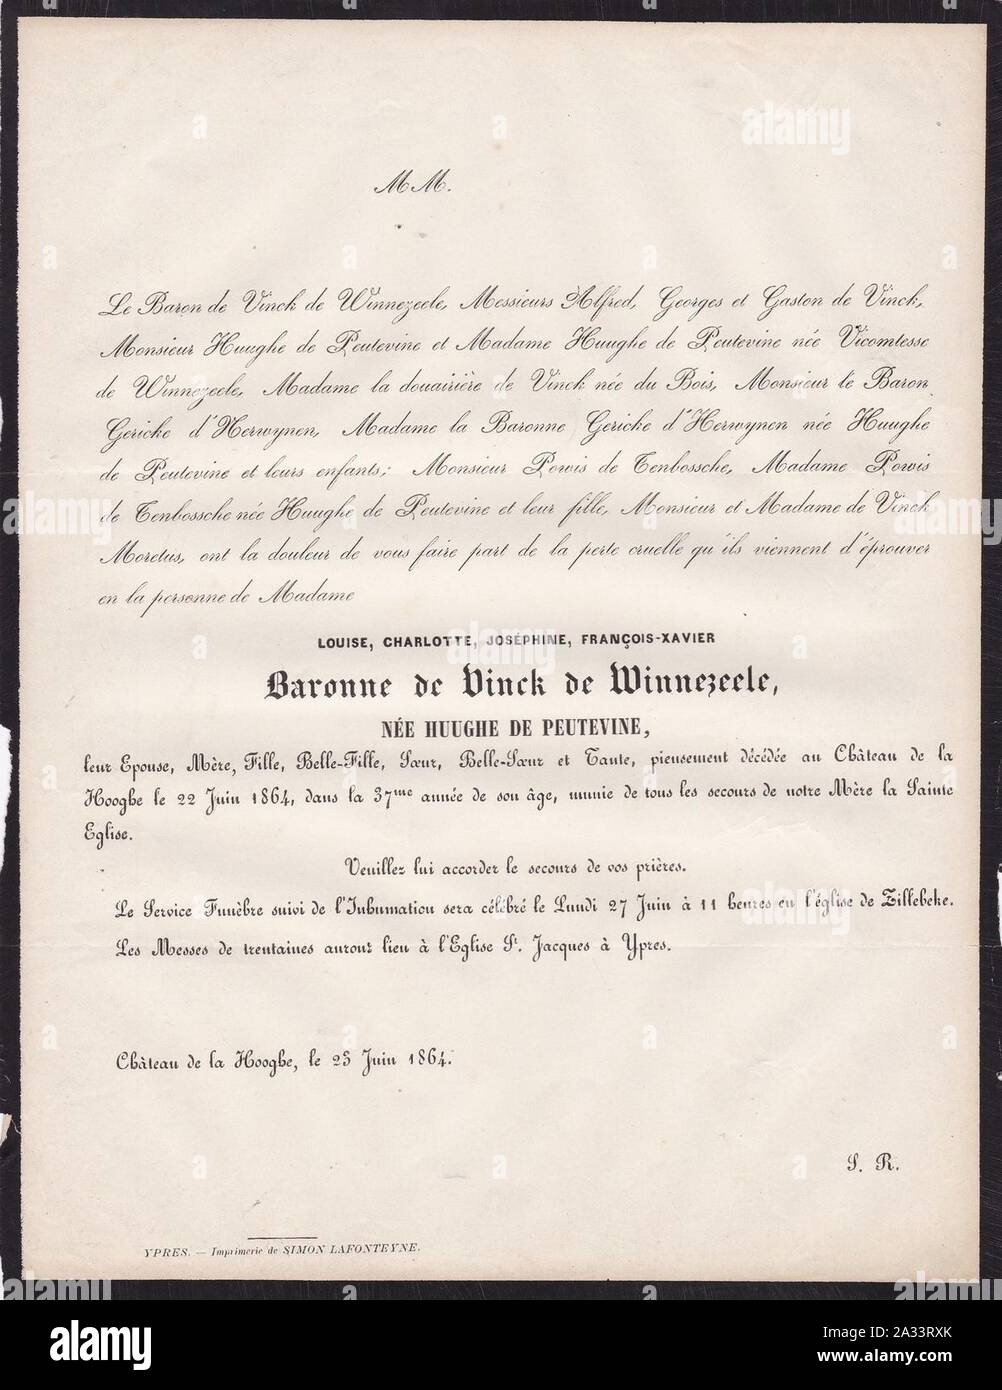 M M.
Le Baron de Vinck de Winnezeele, Messieurs Alfred, Georges et Gaston de Vinck,
Monsieur Huughe de Peutevine et Madame Huughe de Peutevine née Vicomtesse
de Winnezeele, Madame la douairière de Vinck née du Bois, Monsieur le Baron
Gericke d'Herwynen, Madame la Baronne Gericke d'Herwynen née Huughe
de Peutevine et leurs enfants; Monsieur Powis de Tenbossche, Madame Powis
de Tenbossche née Huughe de Peutevine et leur fille, Monsieur et Madame de Vinck
Moretus, ont la douleur de vous faire part de la perte cruelle qu'ils viennent d'éprouver
en la personne de Madame
LOUISE, CHARLOTTE, JOSÉPHINE, FRANÇOIS-XAVIER
Baronne de Vinck de Winnezeele,
NÉE HUUGHE DE PEUTEVINE,
leur Epouse, Mère, Fille, Belle-Fille, Sœur, Belle-Sœur et Tante, pieusement décédée au Château de la
Hooghe le 22 Juin 1864, dans la 37me année de son âge, munie de tous les secours de notre Mère la Sainte
Eglise.
Veuillez lui accorder le secours de vos prières.
Le Service Funèbre suivi de l'Inhumation sera célébré le Lundi 27 Juin à 11 heures en l'église de Zillebeke.
Les Messes de trentaines auront lieu à l'Eglise St. Jacques à Ypres.
Château de la Hooghe, le 23 Juin 1864.
S. R.
YPRES. — Imprimerie de SIMON LAFONTEYNE.
alamy
Image ID: 2A33RXK
www.alamy.com